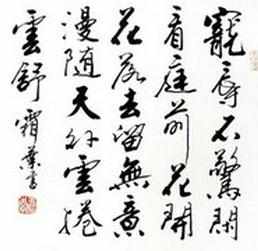 寵辱不驚閑
看庭前花開
花落去留無意
漫随天外雲捲
雲舒 霜葉书